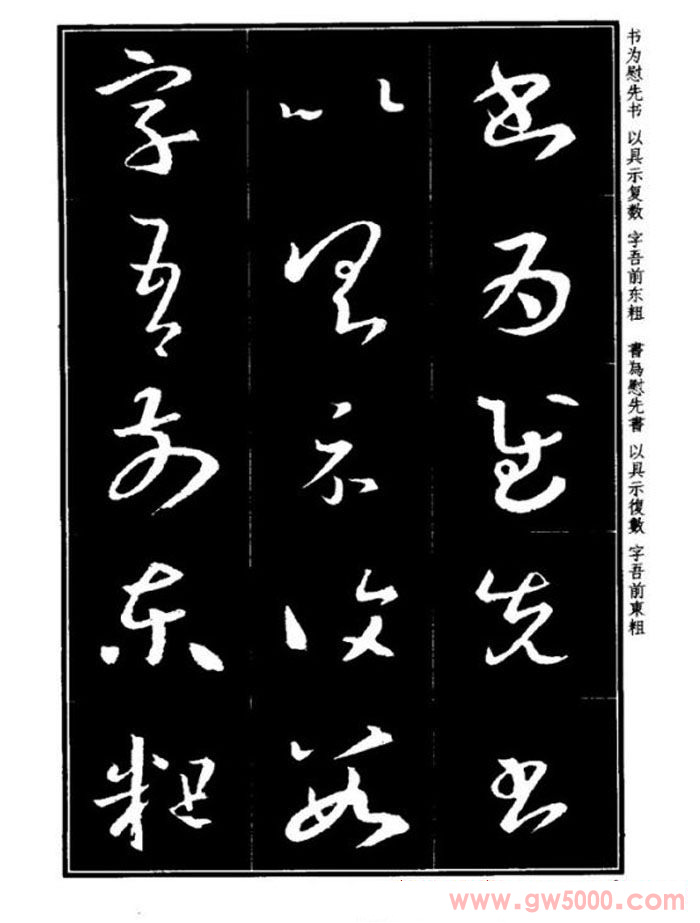 書為慰先書
以具示復數
字吾前東粗
书为慰先书 以具示复数 字吾前东粗 書為慰先書 以具示復數 字吾前東粗
www.gw5000.com